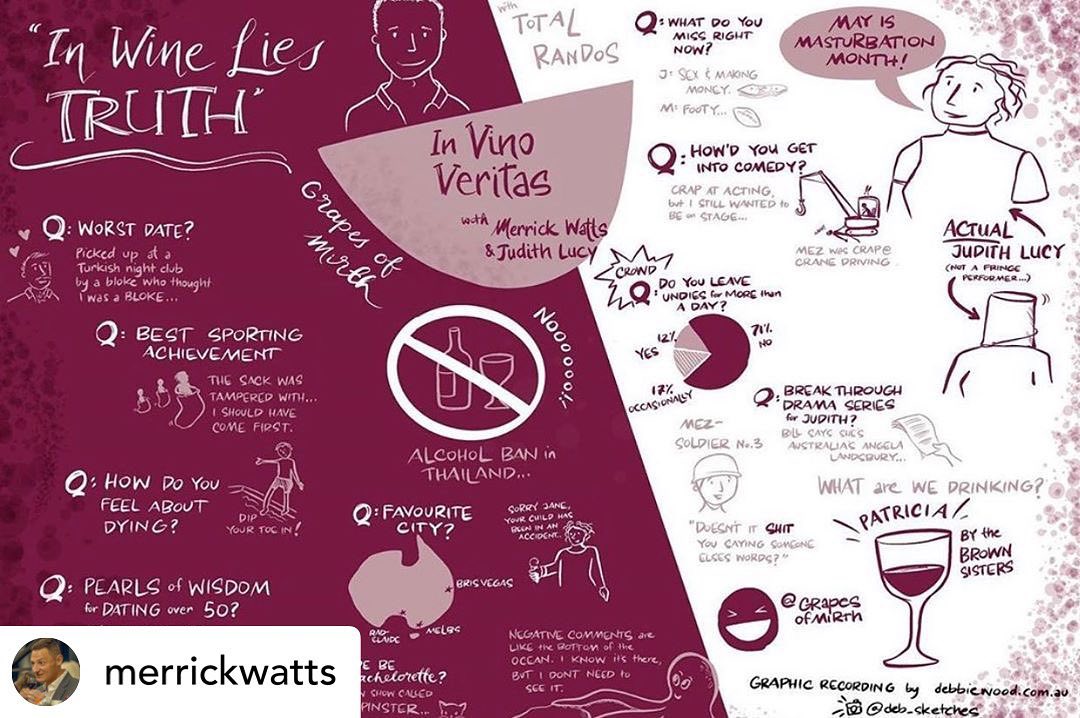 "In Wine Lies
TRUTH"
with
TOTAL
RANDOS
In Vino
Veritas
with Merrick Watts
& Judith Lucy
Grapes of
Mirth
Q: WORST DATE?
Picked up at a
Turkish night club
by a bloke who thought
I was a BLOKE...
Q: BEST SPORTING
ACHIEVEMENT
THE SACK WAS
TAMPERED WITH...
I SHOULD HAVE
COME FIRST.
Q: HOW DO YOU
FEEL ABOUT
DYING?
DIP
YOUR TOE IN!
Q: PEARLS of WISDOM
for DATING over 50?
NOOOOOO!!
ALCOHOL BAN in
THAILAND...
Q: FAVOURITE
CITY?
BRISVEGAS
RAD-
CLAIDE
MELBS
SORRY JANE,
YOUR CHILD HAS
BEEN IN AN
ACCIDENT...
NEGATIVE COMMENTS are
LIKE the BOTTOM of the
OCEAN. I KNOW its THERE,
BUT I DONT NEED to
SEE IT.
E BE
achelorette?
SHOW CALLED
PINSTER...
Q: WHAT DO YOU
MISS RIGHT
NOW?
J: SEX & MAKING
MONEY.
M: FOOTY...
MAY IS
MASTURBATION
MONTH!
Q: HOW'D YOU GET
INTO COMEDY?
CRAP AT ACTING,
but I STILL WANTED to
BE on STAGE...
MEZ was CRAP@
CRANE DRIVING
ACTUAL
JUDITH LUCY
(NOT A FRINGE
PERFORMER...)
CROWD
Q: DO YOU LEAVE
UNDIES for MORE than
A DAY?
12%
YES
71%
NO
17%
OCCASIONALLY
Q: BREAK THROUGH
DRAMA SERIES
for JUDITH?
BILL SAYS SHE'S
AUSTRALIA'S ANGELA
LANDSBURY...
MEZ-
SOLDIER No.3
"DOESN'T it SHIT
YOU SAYING SOMEONE
ELSES WORDS?"
WHAT are WE DRINKING?
PATRICIA
BY the
BROWN
SISTERS
@GRAPES
OFMIRTH
GRAPHIC RECORDING by debbiewood.com.au
@deb_sketches
merrickwatts